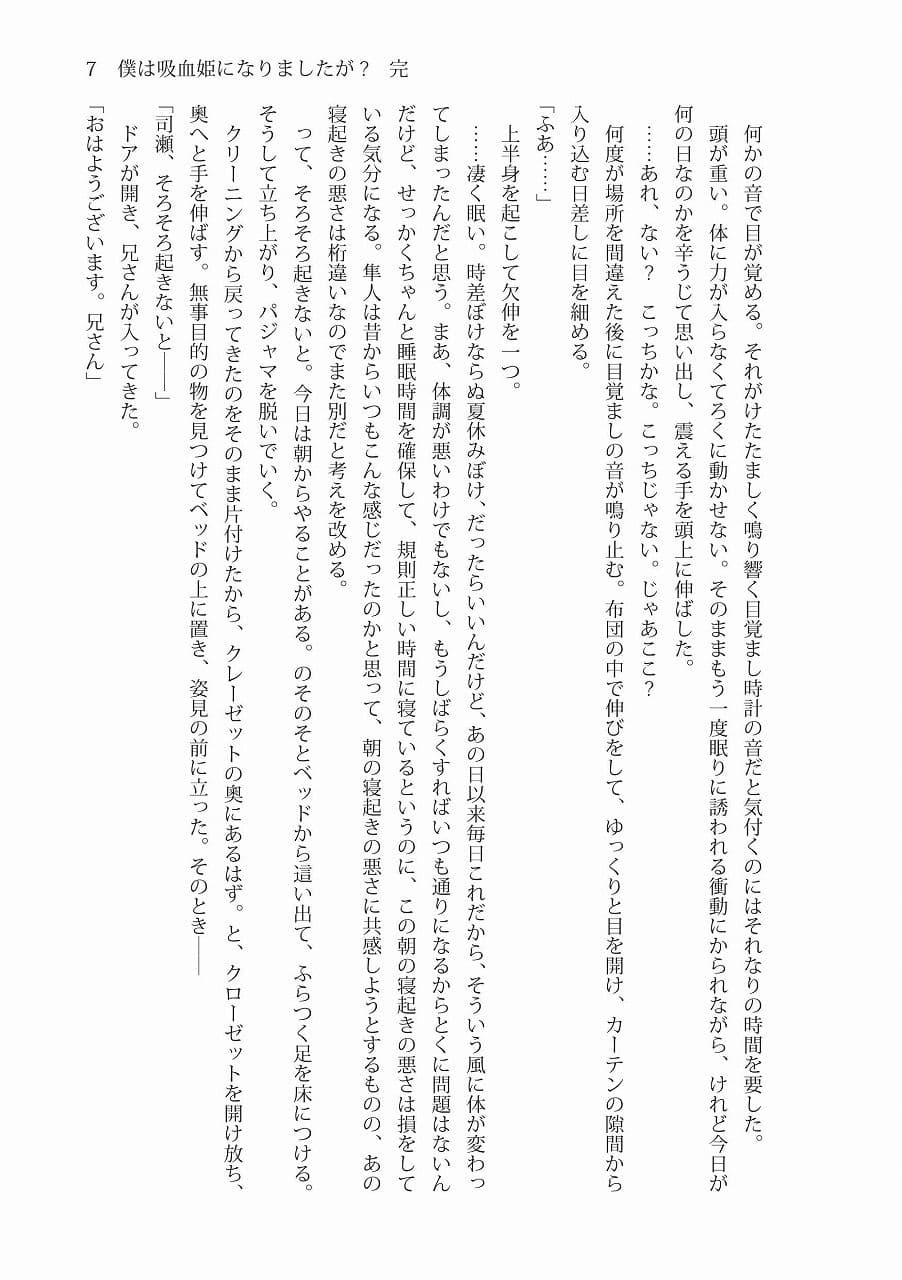 7 僕は吸血姫になりましたが？ 完
何かの音で目が覚める。それがけたたましく鳴り響く目覚まし時計の音だと気付くのにはそれなりの時間を要した。
頭が重い。体に力が入らなくてろくに動かせない。そのままもう一度眠りに誘われる衝動にかられながら、けれど今日が
何の日なのかを辛うじて思い出し、震える手を頭上に伸ばした。
……あれ、ない？　こっちかな。こっちじゃない。じゃあここ？
何度が場所を間違えた後に目覚ましの音が鳴り止む。布団の中で伸びをして、ゆっくりと目を開け、カーテンの隙間から
入り込む日差しに目を細める。
「ふあ……」
上半身を起こして欠伸を一つ。
……凄く眠い。時差ぼけならぬ夏休みぼけ、だったらいいんだけど、あの日以来毎日これだから、そういう風に体が変わっ
てしまったんだと思う。まあ、体調が悪いわけでもないし、もうしばらくすればいつも通りになるからとくに問題はないん
だけど、せっかくちゃんと睡眠時間を確保して、規則正しい時間に寝ているというのに、この朝の寝起きの悪さは損をして
いる気分になる。隼人は昔からいつもこんな感じだったのかと思って、朝の寝起きの悪さに共感しようとするものの、あの
寝起きの悪さは桁違いなのでまた別だと考えを改める。
って、そろそろ起きないと。今日は朝からやることがある。のそのそとベッドから這い出て、ふらつく足を床につける。
そうして立ち上がり、パジャマを脱いでいく。
クリーニングから戻ってきたのをそのまま片付けたから、クレーゼットの奥にあるはず。と、クローゼットを開け放ち、
奥へと手を伸ばす。無事目的の物を見つけてベッドの上に置き、姿見の前に立った。そのとき――
「司瀬、そろそろ起きないと――」
ドアが開き、兄さんが入ってきた。
「おはようございます。兄さん」